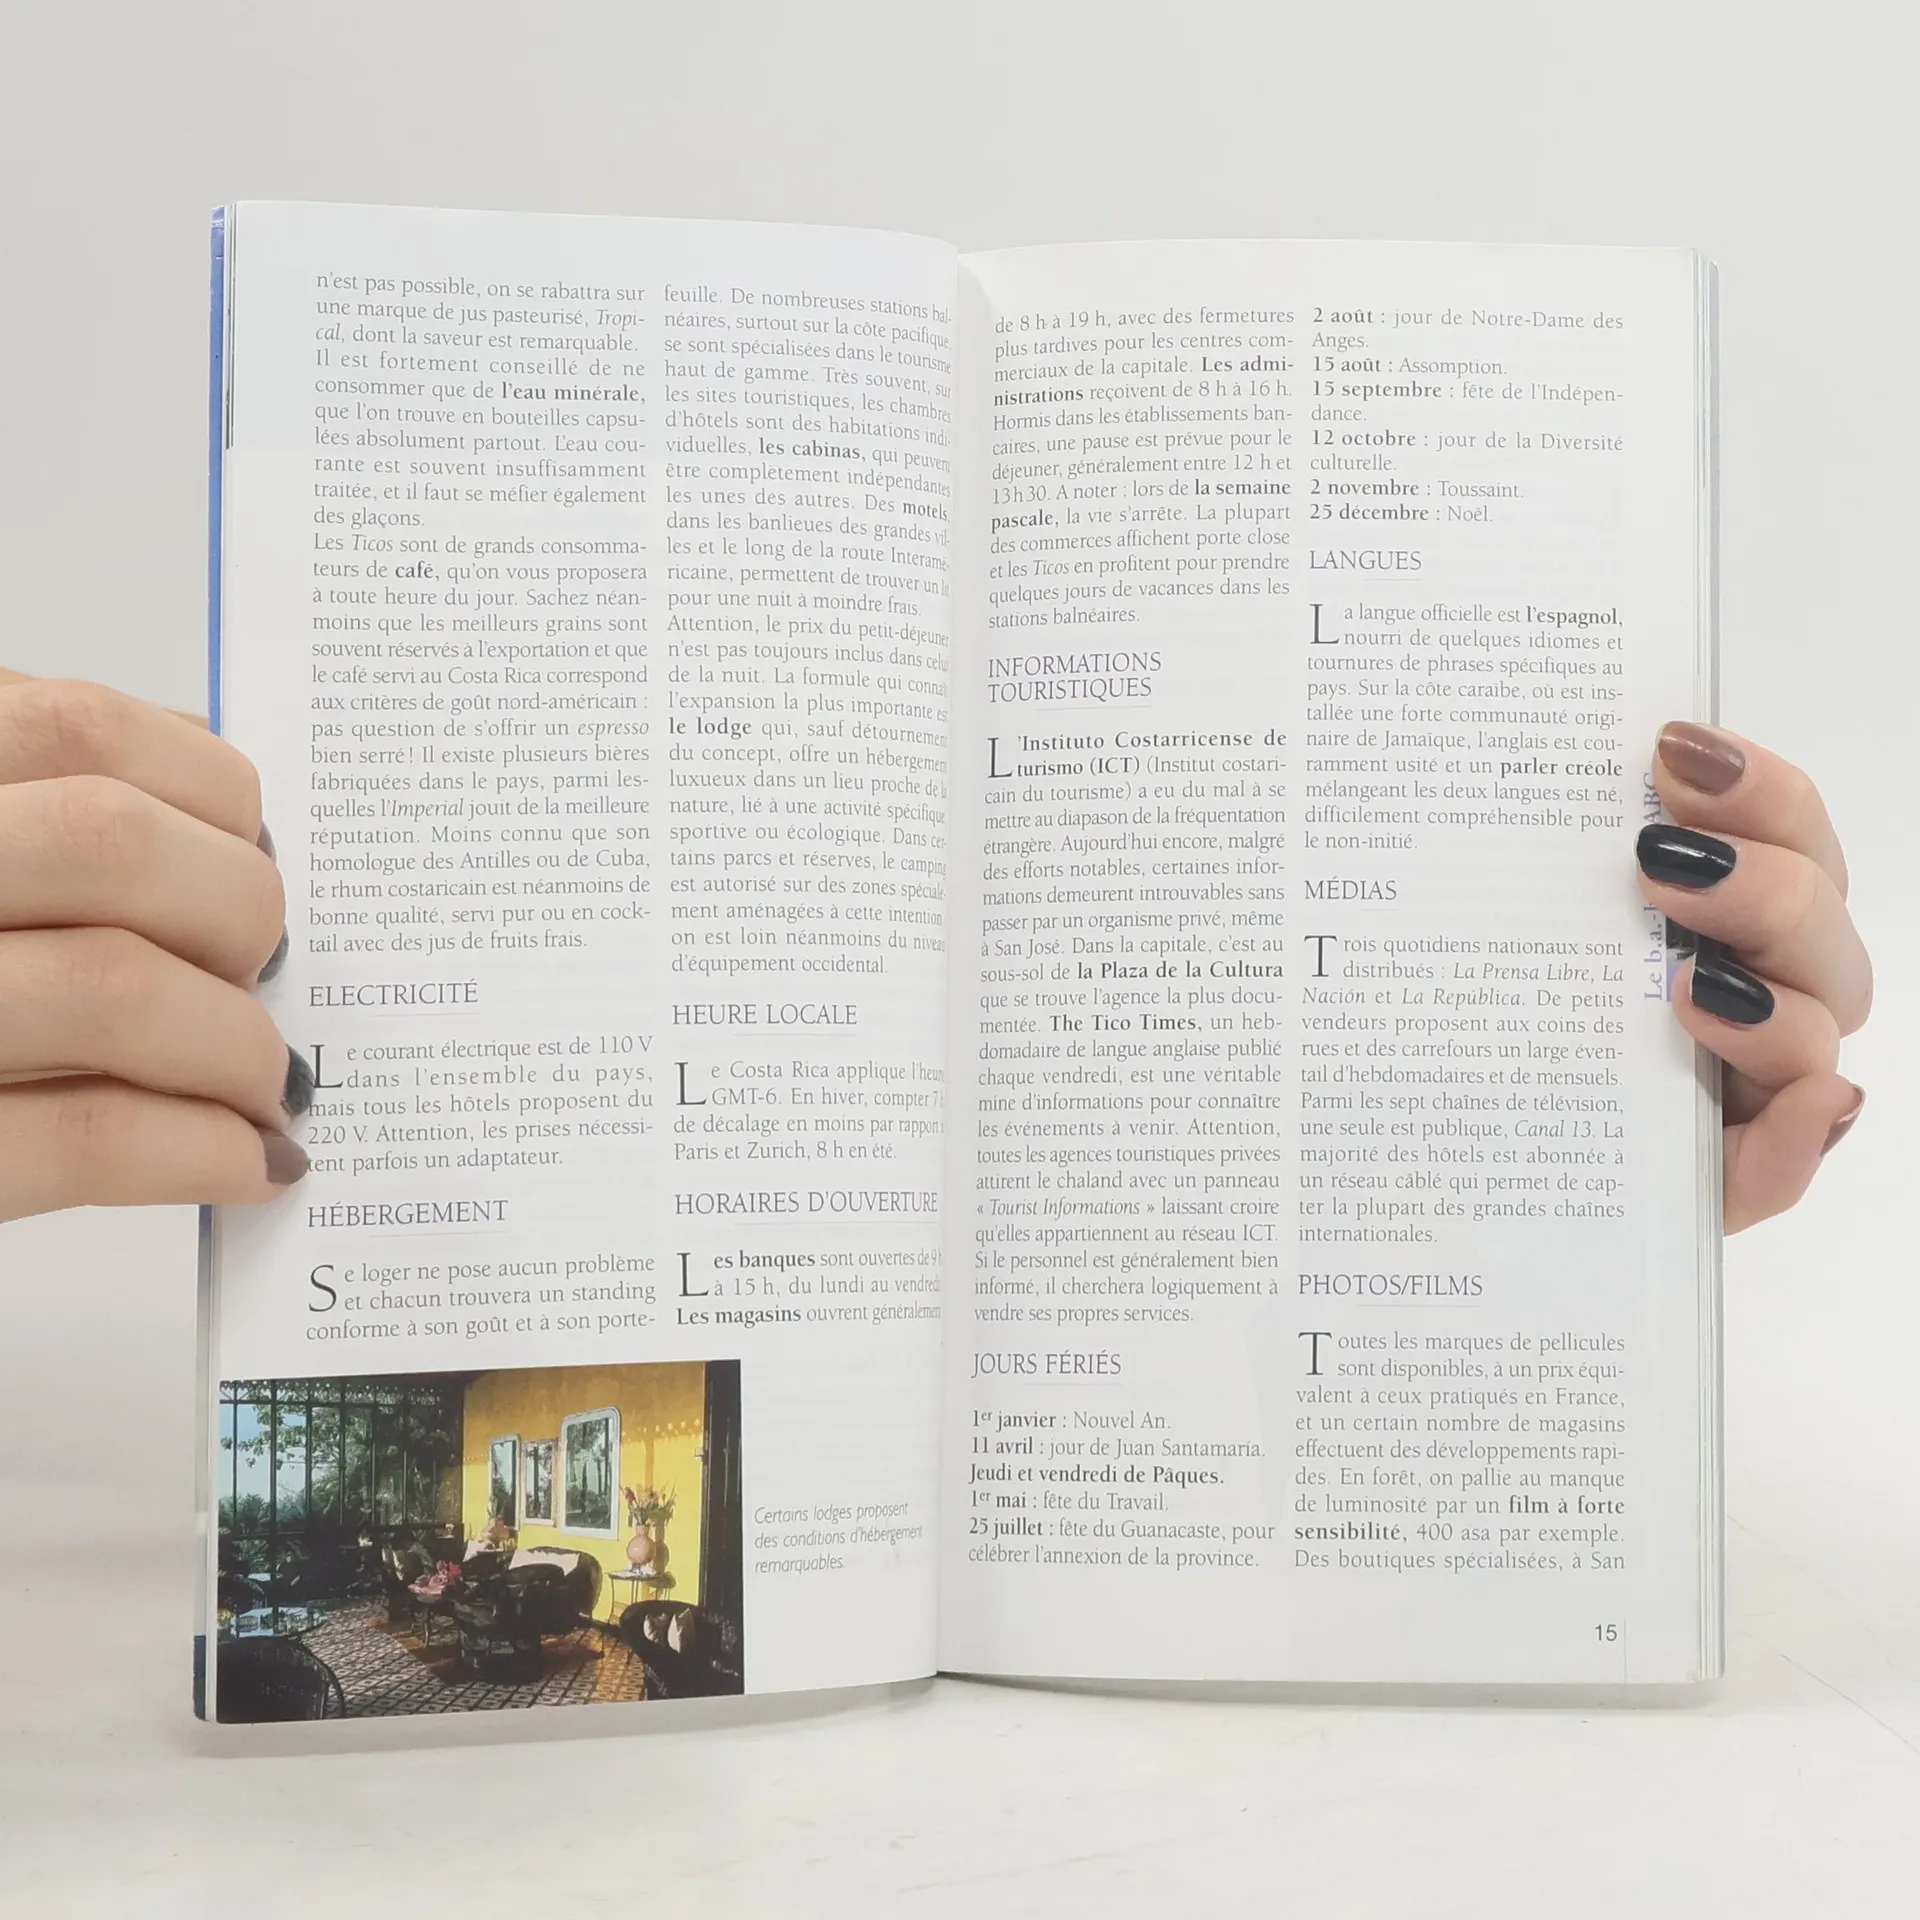 n'est pas possible, on se rabattra sur
une marque de jus pasteurisé, Tropi-
cal, dont la saveur est remarquable.
Il est fortement conseillé de ne
consommer que de l'eau minérale,
que l'on trouve en bouteilles capsu-
lées absolument partout. L'eau cou-
rante est souvent insuffisamment
traitée, et il faut se méfier également
des glaçons.
Les Ticos sont de grands consomma-
teurs de café, qu'on vous proposera
à toute heure du jour. Sachez néan-
moins que les meilleurs grains sont
souvent réservés à l'exportation et que
le café servi au Costa Rica correspond
aux critères de goût nord-américain :
pas question de s'offrir un espresso
bien serré! Il existe plusieurs bières
fabriquées dans le pays, parmi les-
quelles l'Imperial jouit de la meilleure
réputation. Moins connu que son
homologue des Antilles ou de Cuba,
le rhum costaricain est néanmoins de
bonne qualité, servi pur ou en cock-
tail avec des jus de fruits frais.
ELECTRICITÉ
Le courant électrique est de 110 V
dans l'ensemble du pays,
mais tous les hôtels proposent du
220 V. Attention, les prises nécessi-
tent parfois un adaptateur.
HÉBERGEMENT
Se loger ne pose aucun problème
et chacun trouvera un standing
conforme à son goût et à son porte-
feuille. De nombreuses stations bal-
néaires, surtout sur la côte pacifique,
se sont spécialisées dans le tourisme
haut de gamme. Très souvent, sur
les sites touristiques, les chambres
d'hôtels sont des habitations indi-
viduelles, les cabinas, qui peuvent
être complètement indépendantes
les unes des autres. Des motels,
dans les banlieues des grandes vil-
les et le long de la route Interamé-
ricaine, permettent de trouver un lit
pour une nuit à moindre frais.
Attention, le prix du petit-déjeuner
n'est pas toujours inclus dans celui
de la nuit. La formule qui connaît
l'expansion la plus importante est
le lodge qui, sauf détournement
du concept, offre un hébergement
luxueux dans un lieu proche de la
nature, lié à une activité spécifique,
sportive ou écologique. Dans cer-
tains parcs et réserves, le camping
est autorisé sur des zones spéciale-
ment aménagées à cette intention
on est loin néanmoins du niveau
d'équipement occidental.
HEURE LOCALE
Le Costa Rica applique l'heure
GMT-6. En hiver, compter 7 h
de décalage en moins par rapport à
Paris et Zurich, 8 h en été.
HORAIRES D'OUVERTURE
Les banques sont ouvertes de 9 h
à 15 h, du lundi au vendredi.
Les magasins ouvrent généralement
Certains lodges proposent
des conditions d'hébergement
remarquables.
de 8 h à 19 h, avec des fermetures
plus tardives pour les centres com-
merciaux de la capitale. Les admi-
nistrations reçoivent de 8 h à 16 h.
Hormis dans les établissements ban-
caires, une pause est prévue pour le
déjeuner, généralement entre 12 h et
13h30. A noter : lors de la semaine
pascale, la vie s'arrête. La plupart
des commerces affichent porte close
et les Ticos en profitent pour prendre
quelques jours de vacances dans les
stations balnéaires.
INFORMATIONS
TOURISTIQUES
L'Instituto Costarricense de
turismo (ICT) (Institut costari-
cain du tourisme) a eu du mal à se
mettre au diapason de la fréquentation
étrangère. Aujourd'hui encore, malgré
des efforts notables, certaines infor-
mations demeurent introuvables sans
passer par un organisme privé, même
à San José. Dans la capitale, c'est au
sous-sol de la Plaza de la Cultura
que se trouve l'agence la plus docu-
mentée. The Tico Times, un heb-
domadaire de langue anglaise publié
chaque vendredi, est une véritable
mine d'informations pour connaître
les événements à venir. Attention,
toutes les agences touristiques privées
attirent le chaland avec un panneau
« Tourist Informations » laissant croire
qu'elles appartiennent au réseau ICT.
Si le personnel est généralement bien
informé, il cherchera logiquement à
vendre ses propres services.
JOURS FÉRIÉS
1er janvier : Nouvel An.
11 avril : jour de Juan Santamaría.
Jeudi et vendredi de Pâques.
1er mai : fête du Travail.
25 juillet : fête du Guanacaste, pour
célébrer l'annexion de la province.
2 août : jour de Notre-Dame des
Anges.
15 août : Assomption.
15 septembre : fête de l'Indépen-
dance.
12 octobre : jour de la Diversité
culturelle.
2 novembre : Toussaint.
25 décembre : Noël.
LANGUES
La langue officielle est l'espagnol,
nourri de quelques idiomes et
tournures de phrases spécifiques au
pays. Sur la côte caraïbe, où est ins-
tallée une forte communauté origi-
naire de Jamaïque, l'anglais est cou-
ramment usité et un parler créole
mélangeant les deux langues est né,
difficilement compréhensible pour
le non-initié.
MÉDIAS
Trois quotidiens nationaux sont
distribués : La Prensa Libre, La
Nación et La República. De petits
vendeurs proposent aux coins des
rues et des carrefours un large éven-
tail d'hebdomadaires et de mensuels.
Parmi les sept chaînes de télévision,
une seule est publique, Canal 13. La
majorité des hôtels est abonnée à
un réseau câblé qui permet de cap-
ter la plupart des grandes chaînes
internationales.
PHOTOS/FILMS
Toutes les marques de pellicules
sont disponibles, à un prix équi-
valent à ceux pratiqués en France,
et un certain nombre de magasins
effectuent des développements rapi-
des. En forêt, on pallie au manque
de luminosité par un film à forte
sensibilité, 400 asa par exemple.
Des boutiques spécialisées, à San
Le b.a.-
ABC
15